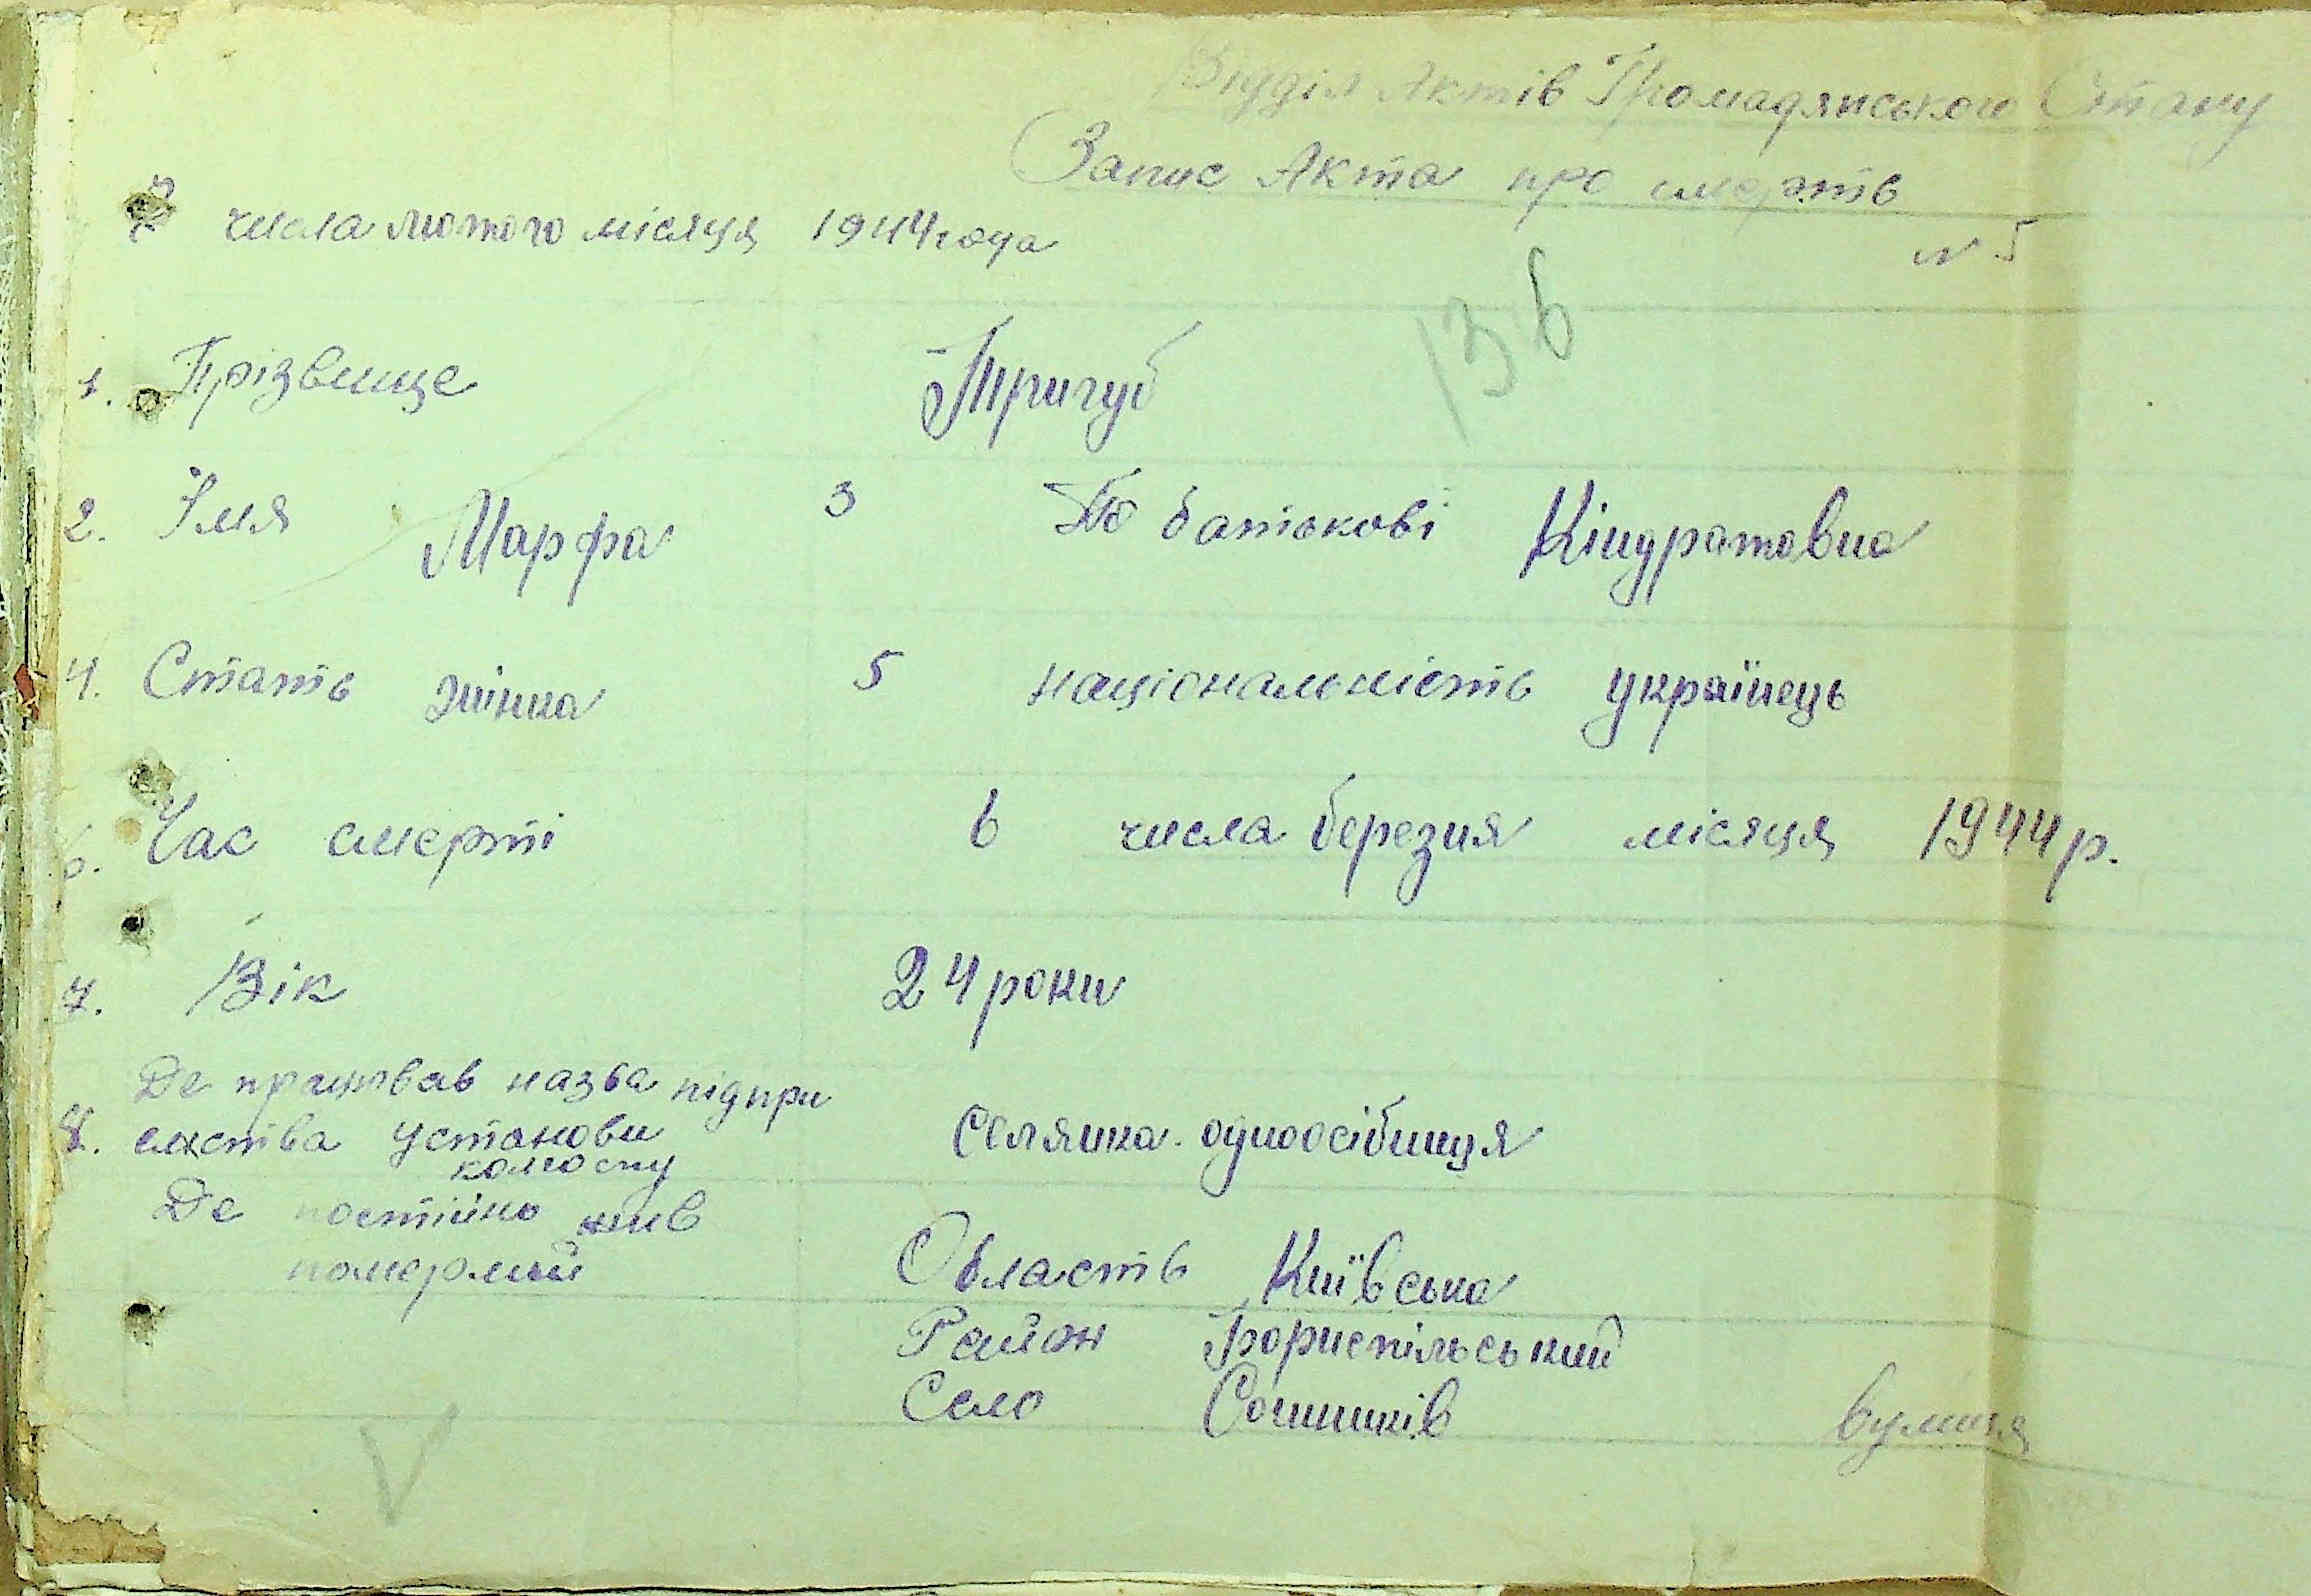 Відділ Актів Громадянського Стану
Запис Акта про смерть
7 числа лютого місяця 1944 года
N 5
136
1. Прізвище Тригуб
2. Імя Марфа 3 По батькові Кіндратовна
4. Стать жінка 5 національність українець
6. Час смерті 6 числа березня місяця 1944 р.
7. Вік 24 роки
Де працював назва підпри
8. ємства установи Селянка одноосібниця
колгоспу
Де постійно жив
померлий Область Київська
Район Бориспільський
Село Сошників вулиця